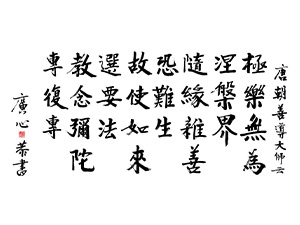 唐朝善導大師云
極樂無為
涅槃界
隨緣雜善
恐難生
故使如來
選要法
教念彌陀
專復專
廣心恭書